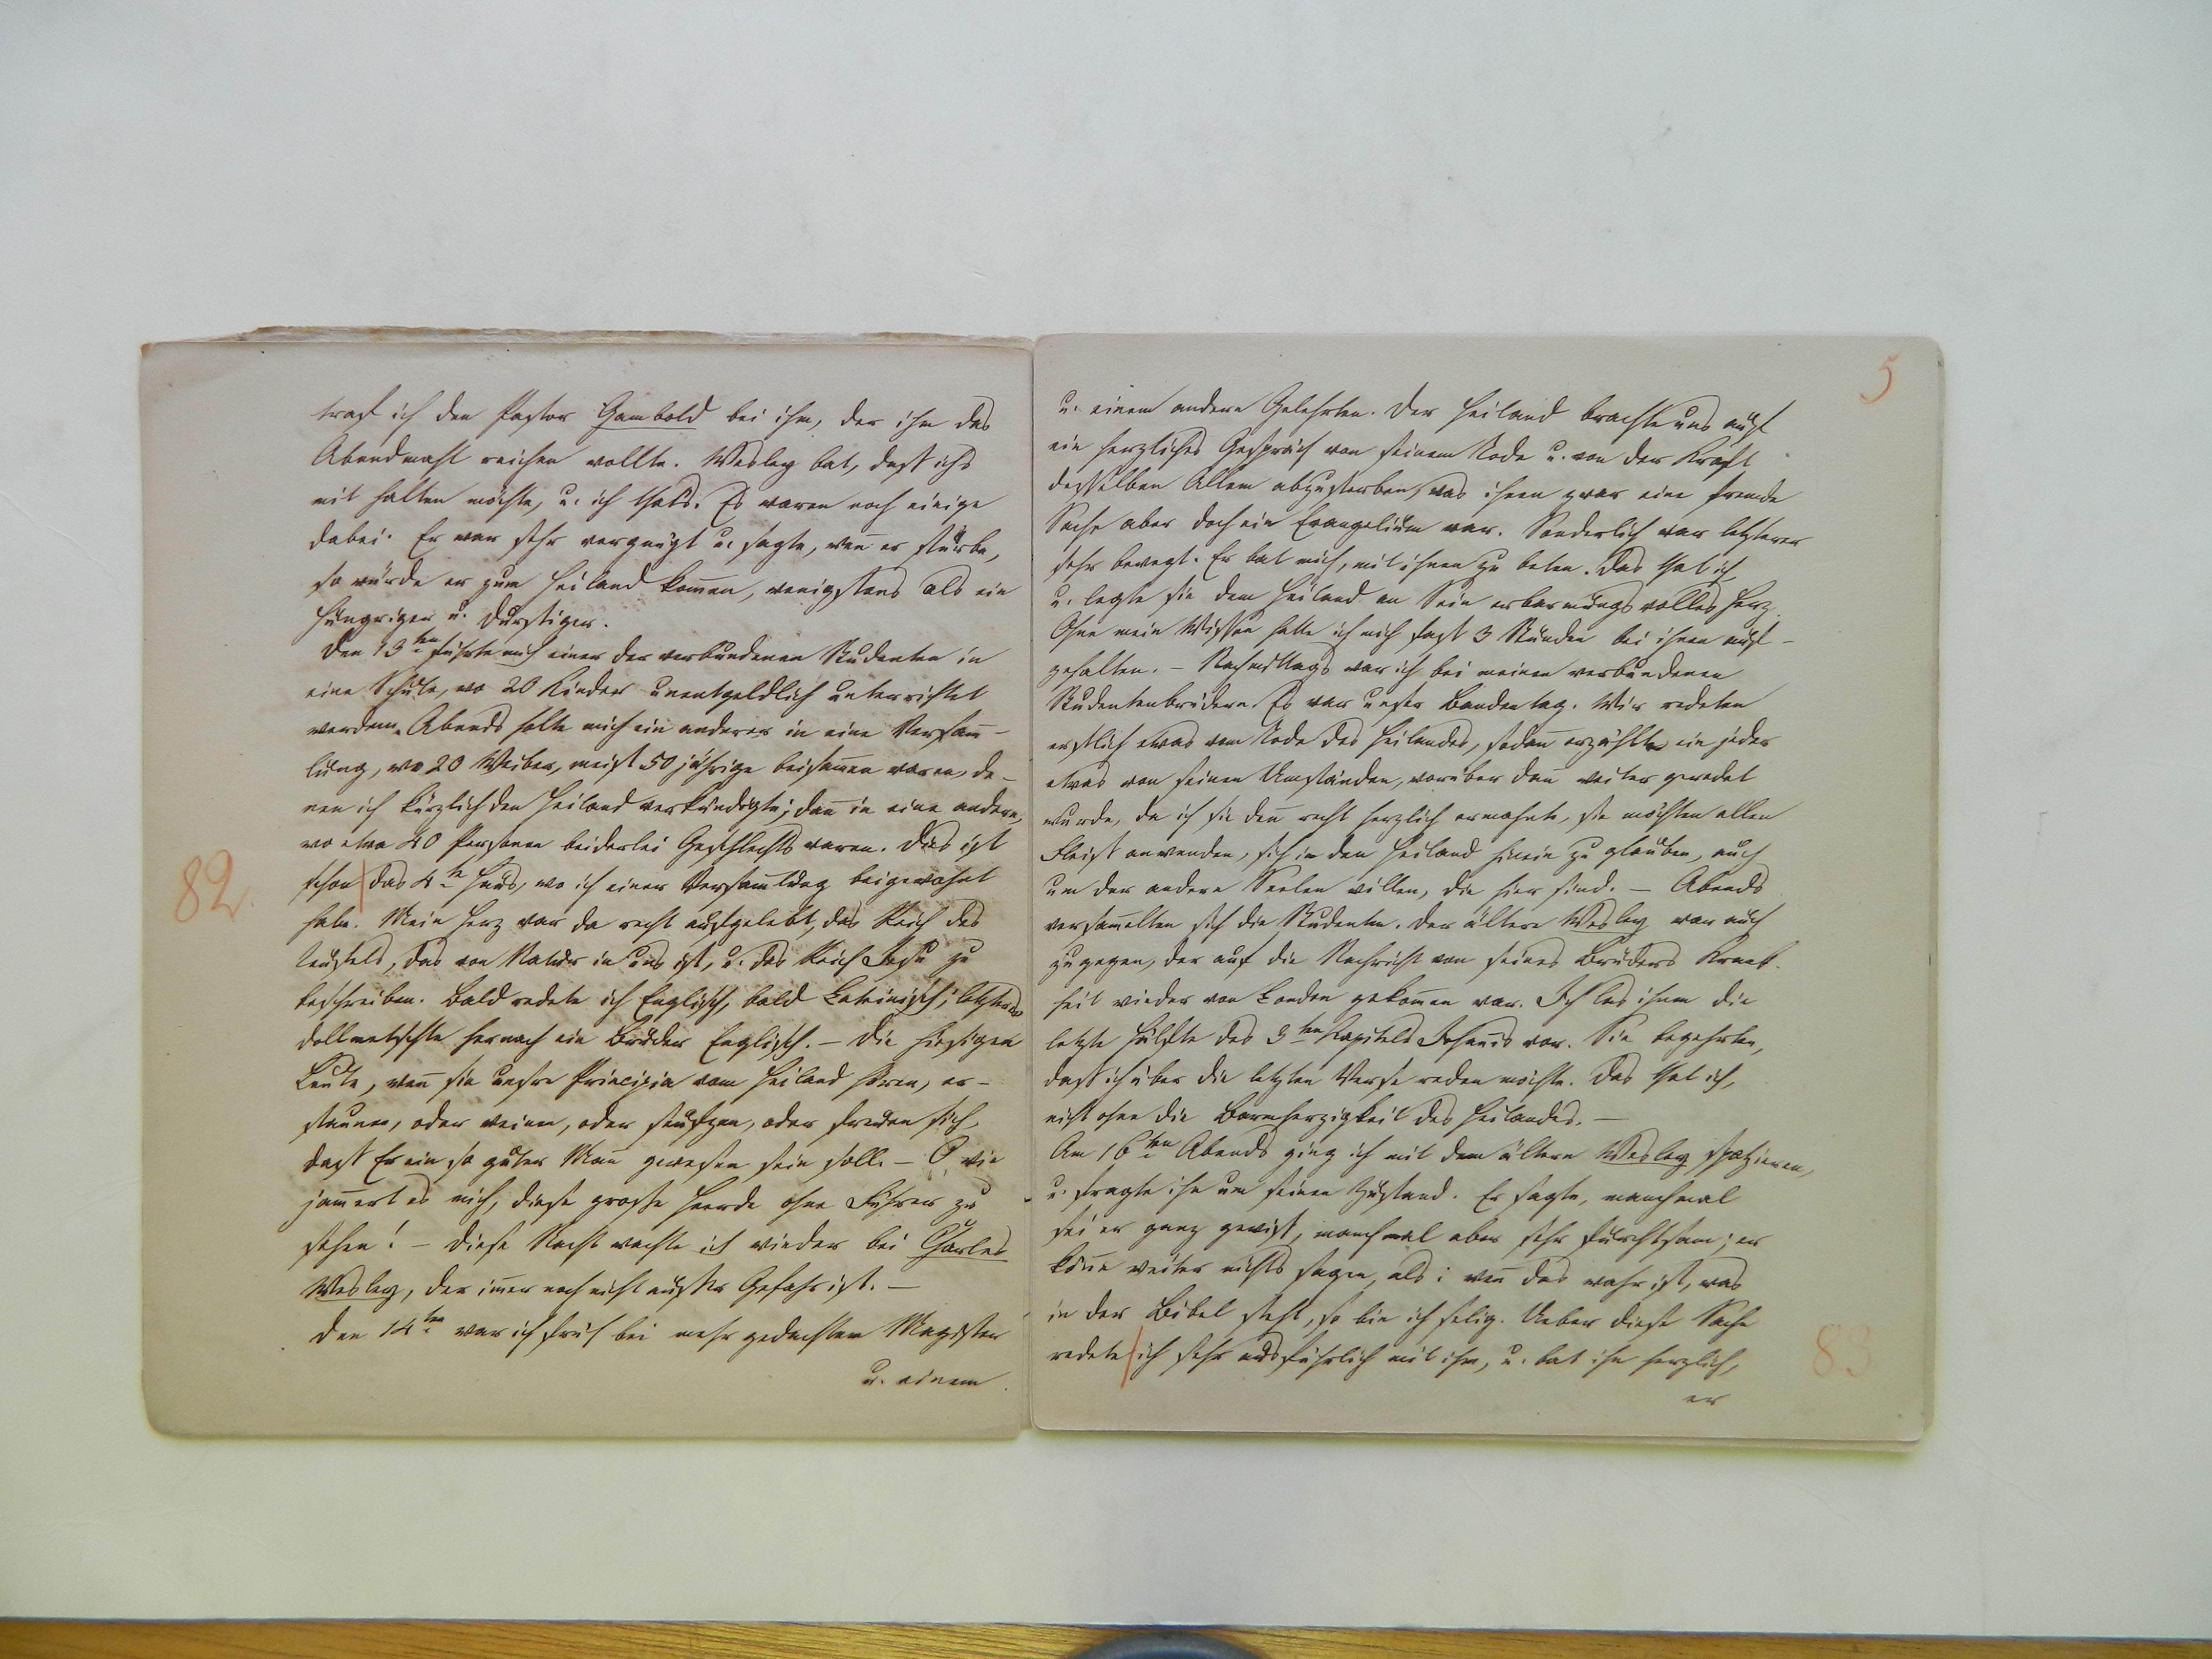 traf ich den Pastor Gambold bei ihm, der ihm das
Abendmahl reichen wollte. Wesley bat, daß ichs
mit halten möchte, u. ich thats. Es waren noch einige
dabei. Er war sehr vergnügt u. sagte, weñ er stürbe,
so würde er zum Heiland kom̃en, wenigstens als ein
Hungriger u. Durstiger.
Den 13ten führte mich einer der verbundenen Studenten in
eine Schule, wo 20 Kinder unentgeldlich unterrichtet
werden. Abends holte mich ein anderer in eine Versam̃-
lung, wo 20 Weiber, meist 50 jährige beisam̃en waren, de-
nen ich kürzlich den Heiland verkündigte; dañ in eine andere,
wo etwa 40 Personen beiderlei Geschlechts waren. Dies ist
82.
schon das 4te Haus, wo ich einer Versam̃lung beigewohnt
habe. Mein Herz war da recht aufgelebt, das Reich des
Teufels, das von Natur in uns ist, u. das Reich Jesu zu
beschreiben. Bald redete ich Englisch, bald Lateinisch; letzteres
dollmetschte hernach ein Bruder Englisch. – Die hiesigen
Leute, weñ sie unsre Principia vom Heiland hören, er-
staunen, oder weinen, oder seufzen, oder freuen sich,
daß Er ein so guter Mañ gewesen sein soll. – O, wie
jam̃ert es mich, diese große Heerde ohne Führer zu
sehen! – Diese Nacht wachte ich wieder bei Charles
Wesley, der im̃er noch nicht außer Gefahr ist. –
Den 14ten war ich früh bei mehr gedachtem Magister
u. einem
5
u. einem andern Gelehrten. Der Heiland brachte uns auf
ein herzliches Gespräch von seinem Tode u. von der Kraft
desselben Allem abzusterben, was ihnen zwar eine fremde
Sache aber doch ein Evangelium war. Sonderlich war letzterer
sehr bewegt. Er bat mich, mit ihnen zu beten. Das that ich
u. legte sie dem Heiland an Sein erbarmungsvolles Herz.
Ohne mein Wissen hatte ich mich fast 3 Stunden bei ihnen auf-
gehalten. – Nachmittags war ich bei meinen verbundenen
Studentenbrüdern. Es war unser Bandentag. Wir redeten
erstlich etwas vom Tode des Heilandes, sodañ erzählte ein jeder
etwas von seinen Umständen, worüber dañ weiter geredet
wurde, da ich sie deñ recht herzlich ermahnte, sie möchten allen
Fleiß anwenden, sich in den Heiland hinein zu glauben, auch
um der andern Seelen willen, die hier sind. – Abends
versam̃elten sich die Studenten. Der ältere Wesley war auch
zugegen, der auf die Nachricht von seines Bruders Krank-
heit wieder von London gekom̃en war. Ich las ihnen die
letzte Hälfte des 3ten Kapitels Johañis vor. Sie begehrten,
daß ich über die letzten Verse reden möchte. Das that ich,
nicht ohne die Barmherzigkeit des Heilandes. –
Am 16ten Abends ging ich mit dem ältern Wesley spatzieren,
u. fragte ihn um seinen Zustand. Er sagte, manchmal
sei er ganz gewiß, manchmal aber sehr furchtsam; er
köñe weiter nichts sagen, als: weñ das wahr ist, was
in der Bibel steht, so bin ich selig. Ueber diese Sache
redete ich sehr ausführlich mit ihm, u. bat ihn herzlich,
83
er